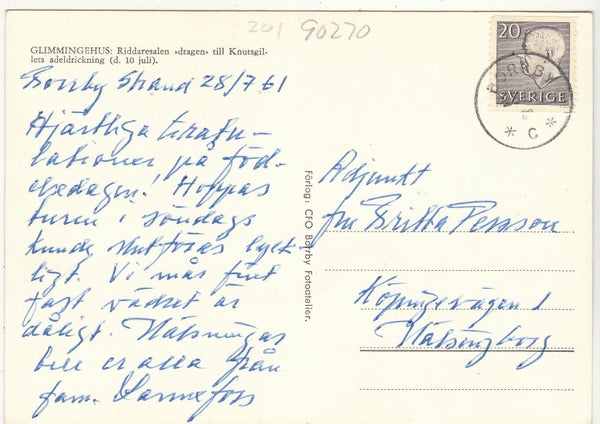 201 90270
GLIMMINGEHUS: Riddaresalen »dragen» till Knutsgil-
lets adeldrickning (d. 10 juli).
Borrby Strand 28/7 61
Hjärtliga Gratu-
lationer på föd-
elsedagen! Hoppas
turen i söndags
kunde slutföras lyck-
ligt. Vi mår fint
fast vädret är
dåligt. Hälsningar
till er alla från
fam.
Förlag: CFO Borrby Fotoatelier.
Adjunkt
fru Britta Persson
Köpingevägen 1
Hälsingborg
20
SVERIGE
BORRBY
* C *